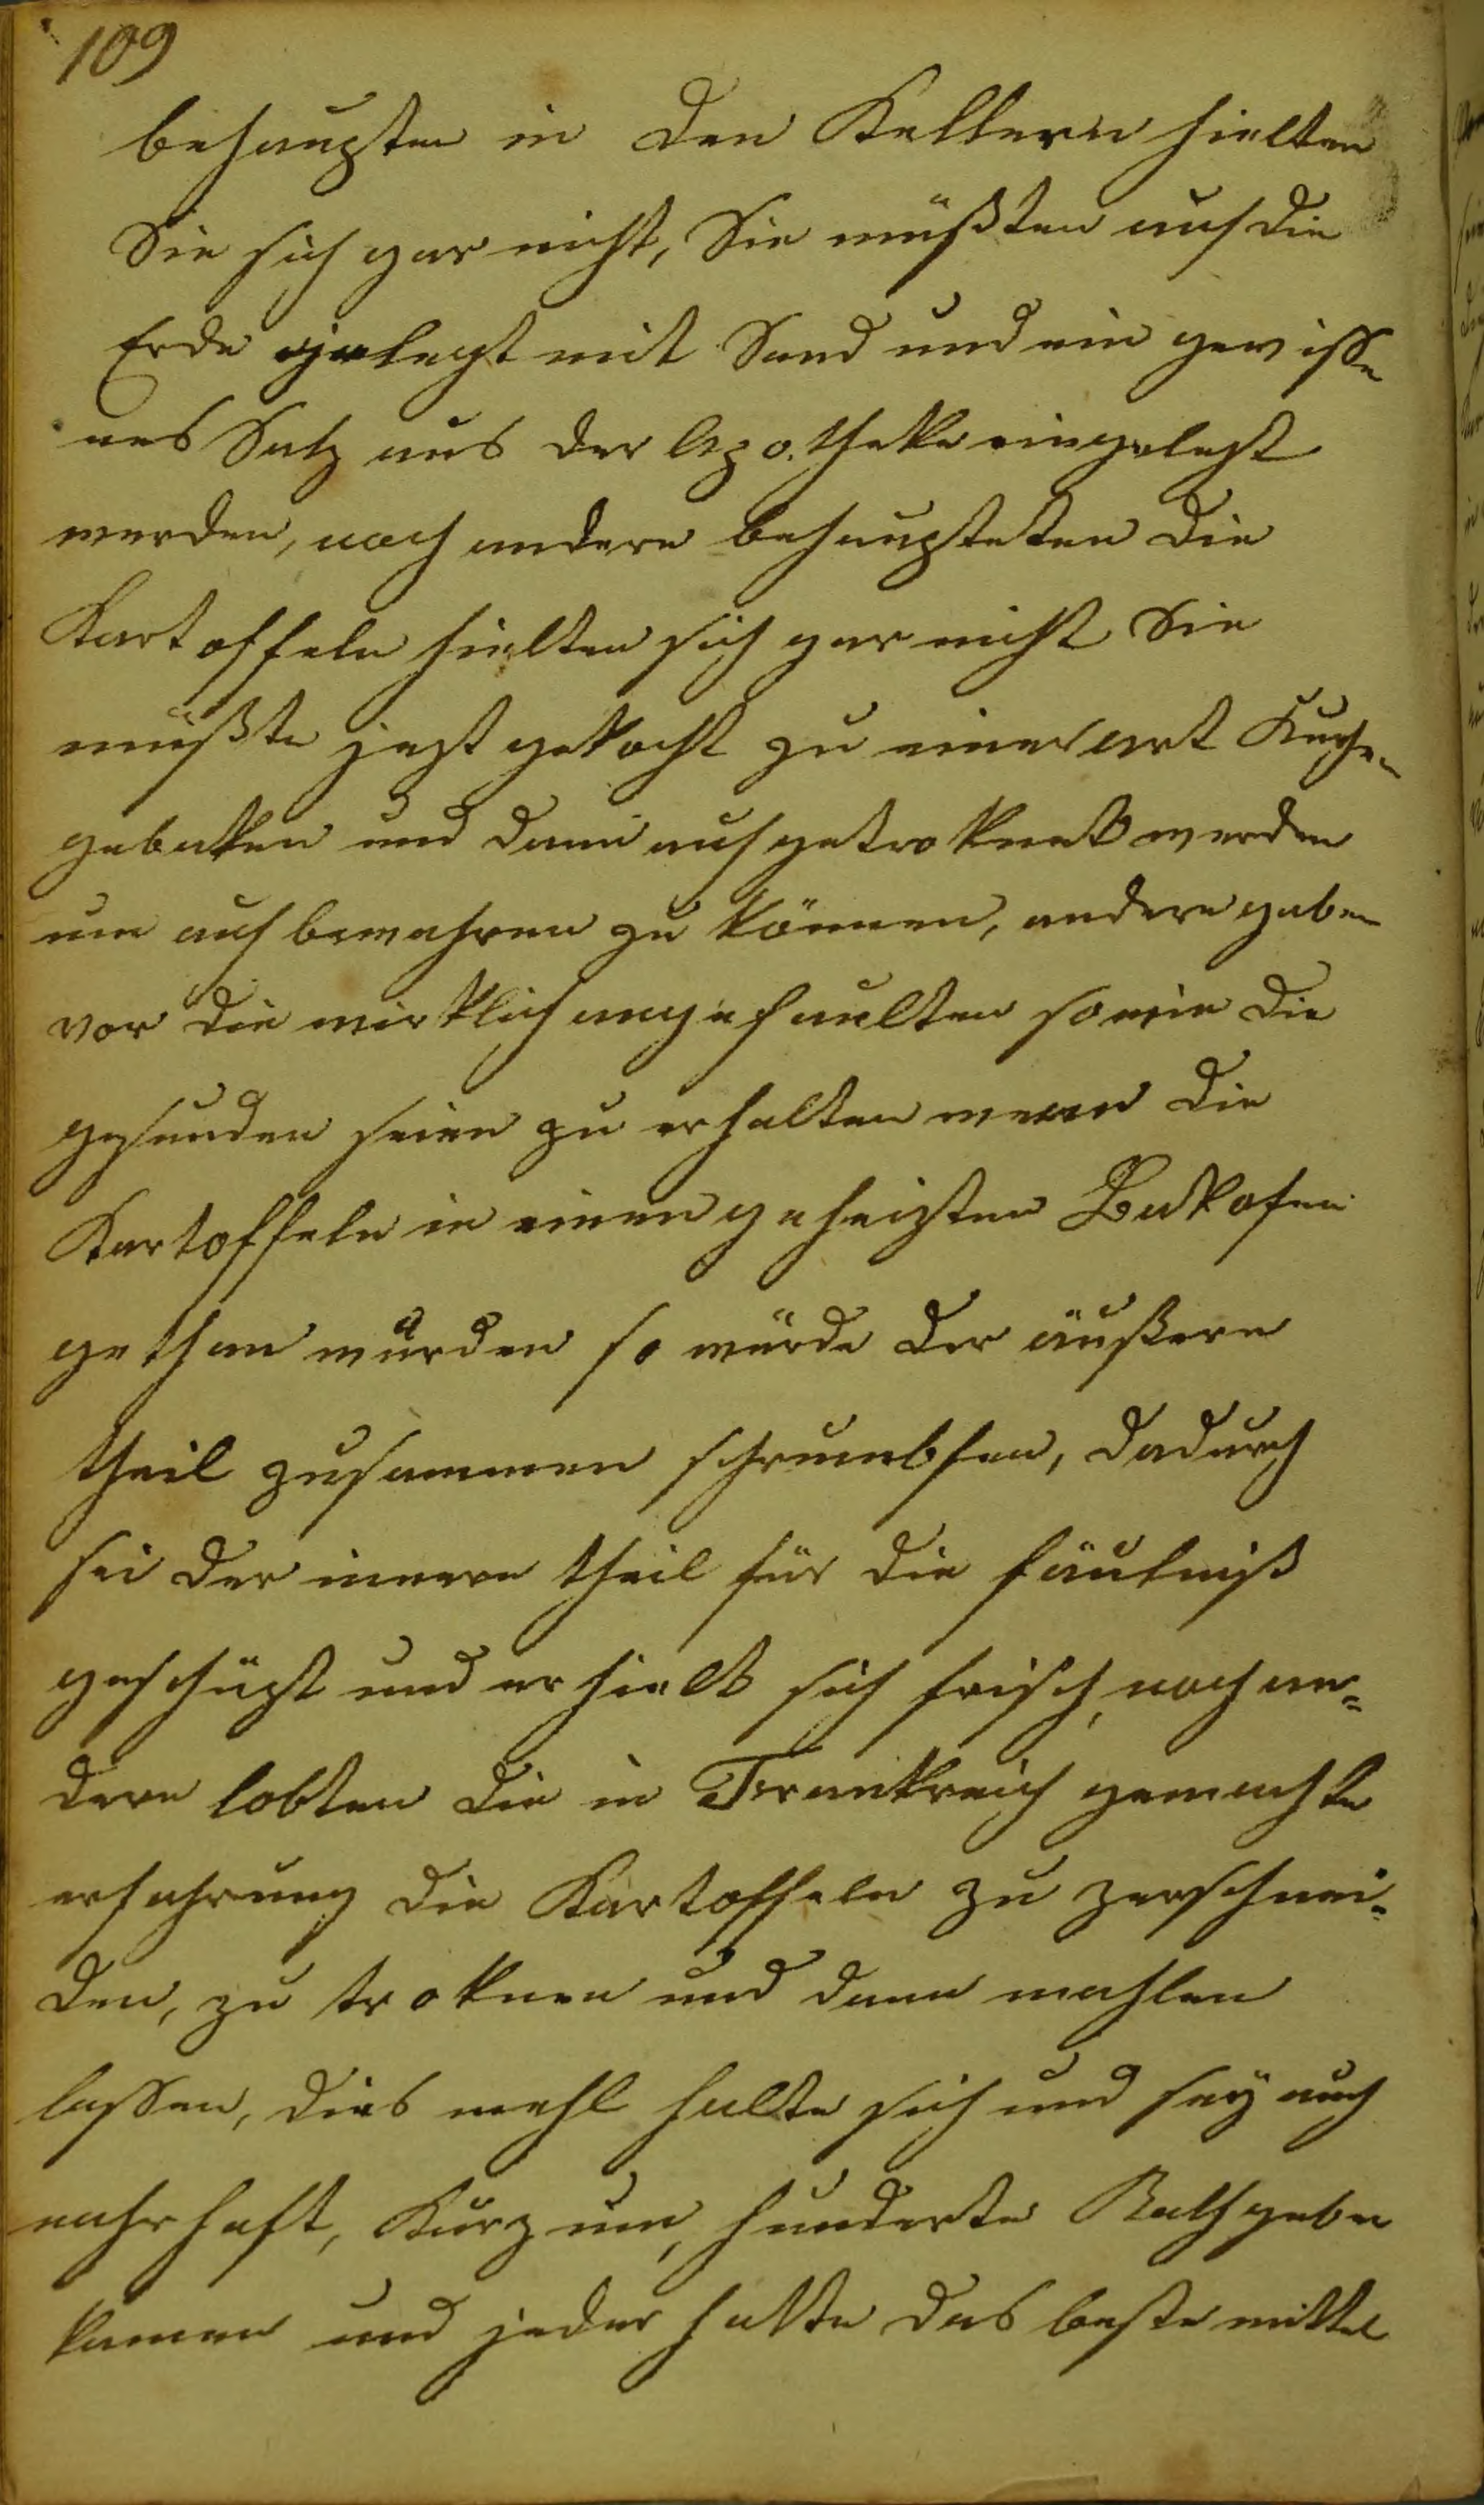 109
behaupten in den Kellern hielten
Sie sich gar nicht, Sie müßten auf die
Erde gelegt mit Sand und ein gewisse
nes Salz aus der Apotheke eingelegt
werden, noch andere behaupteten die
Kartoffeln hielten sich gar nicht Sie
müßte jezt gekocht zu einer art Kuche
gebaken und dann aufgetroknet werden
um aufbewahren zu können, andere gaben
vor die wirklich angefaulten sowie die
gesunden seien zu erhalten wenn die
Kartoffeln in einen geheizten Bakofen
gethan wurden so würde der äußere
theil zusammen schrumbfen, dadurch
sei der innere theil für die fäulniß
geschüzt und erhielt sich frisch, noch an=
dere lobten die in Frankreich gemachte
erfahrung die Kartoffeln zu zerschnei=
den, zu troknen und dann mahlen
lassen, dies mehl halte sich und sey auch
nahrhaft, Kurz um, hunderte Rathgeber
kamen und jeder hatte das beste mittel